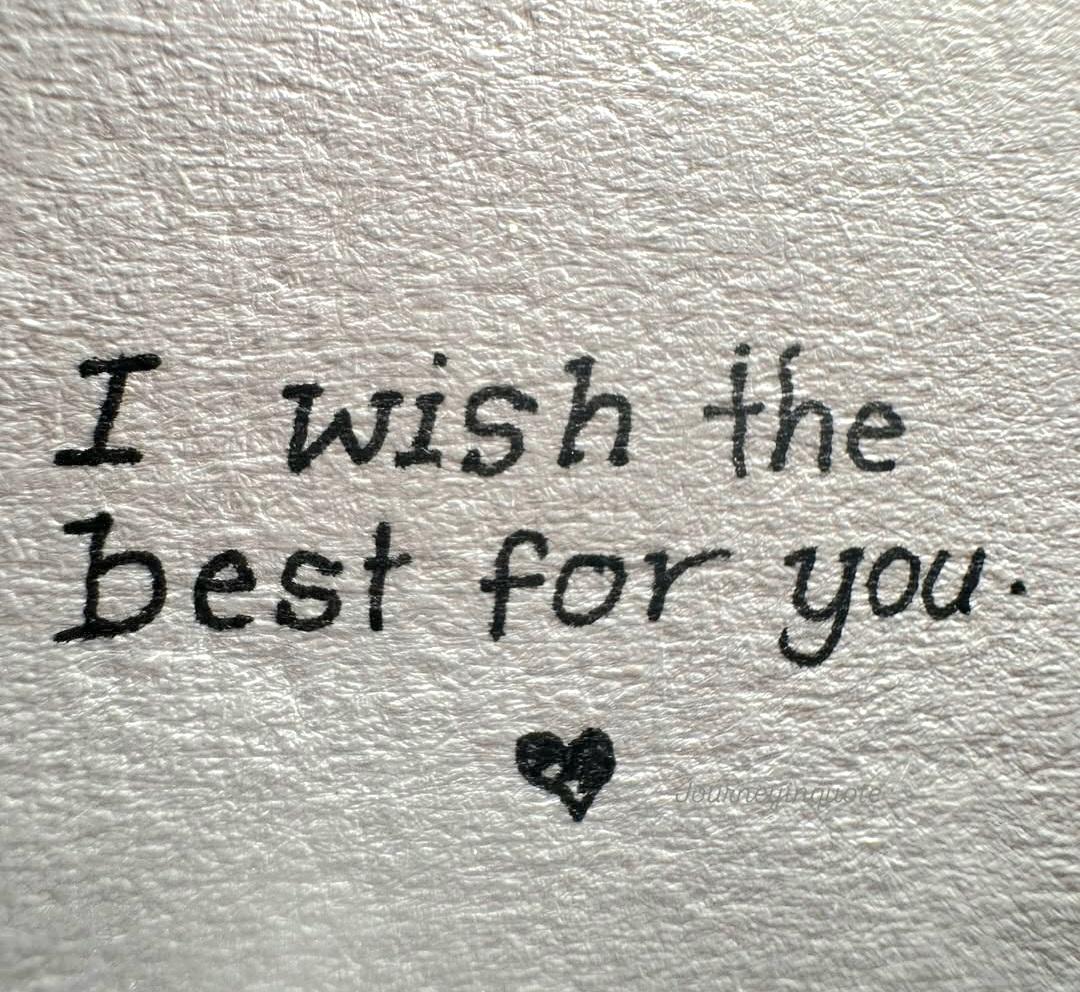 I wish the
best for you.
Journeyinquote